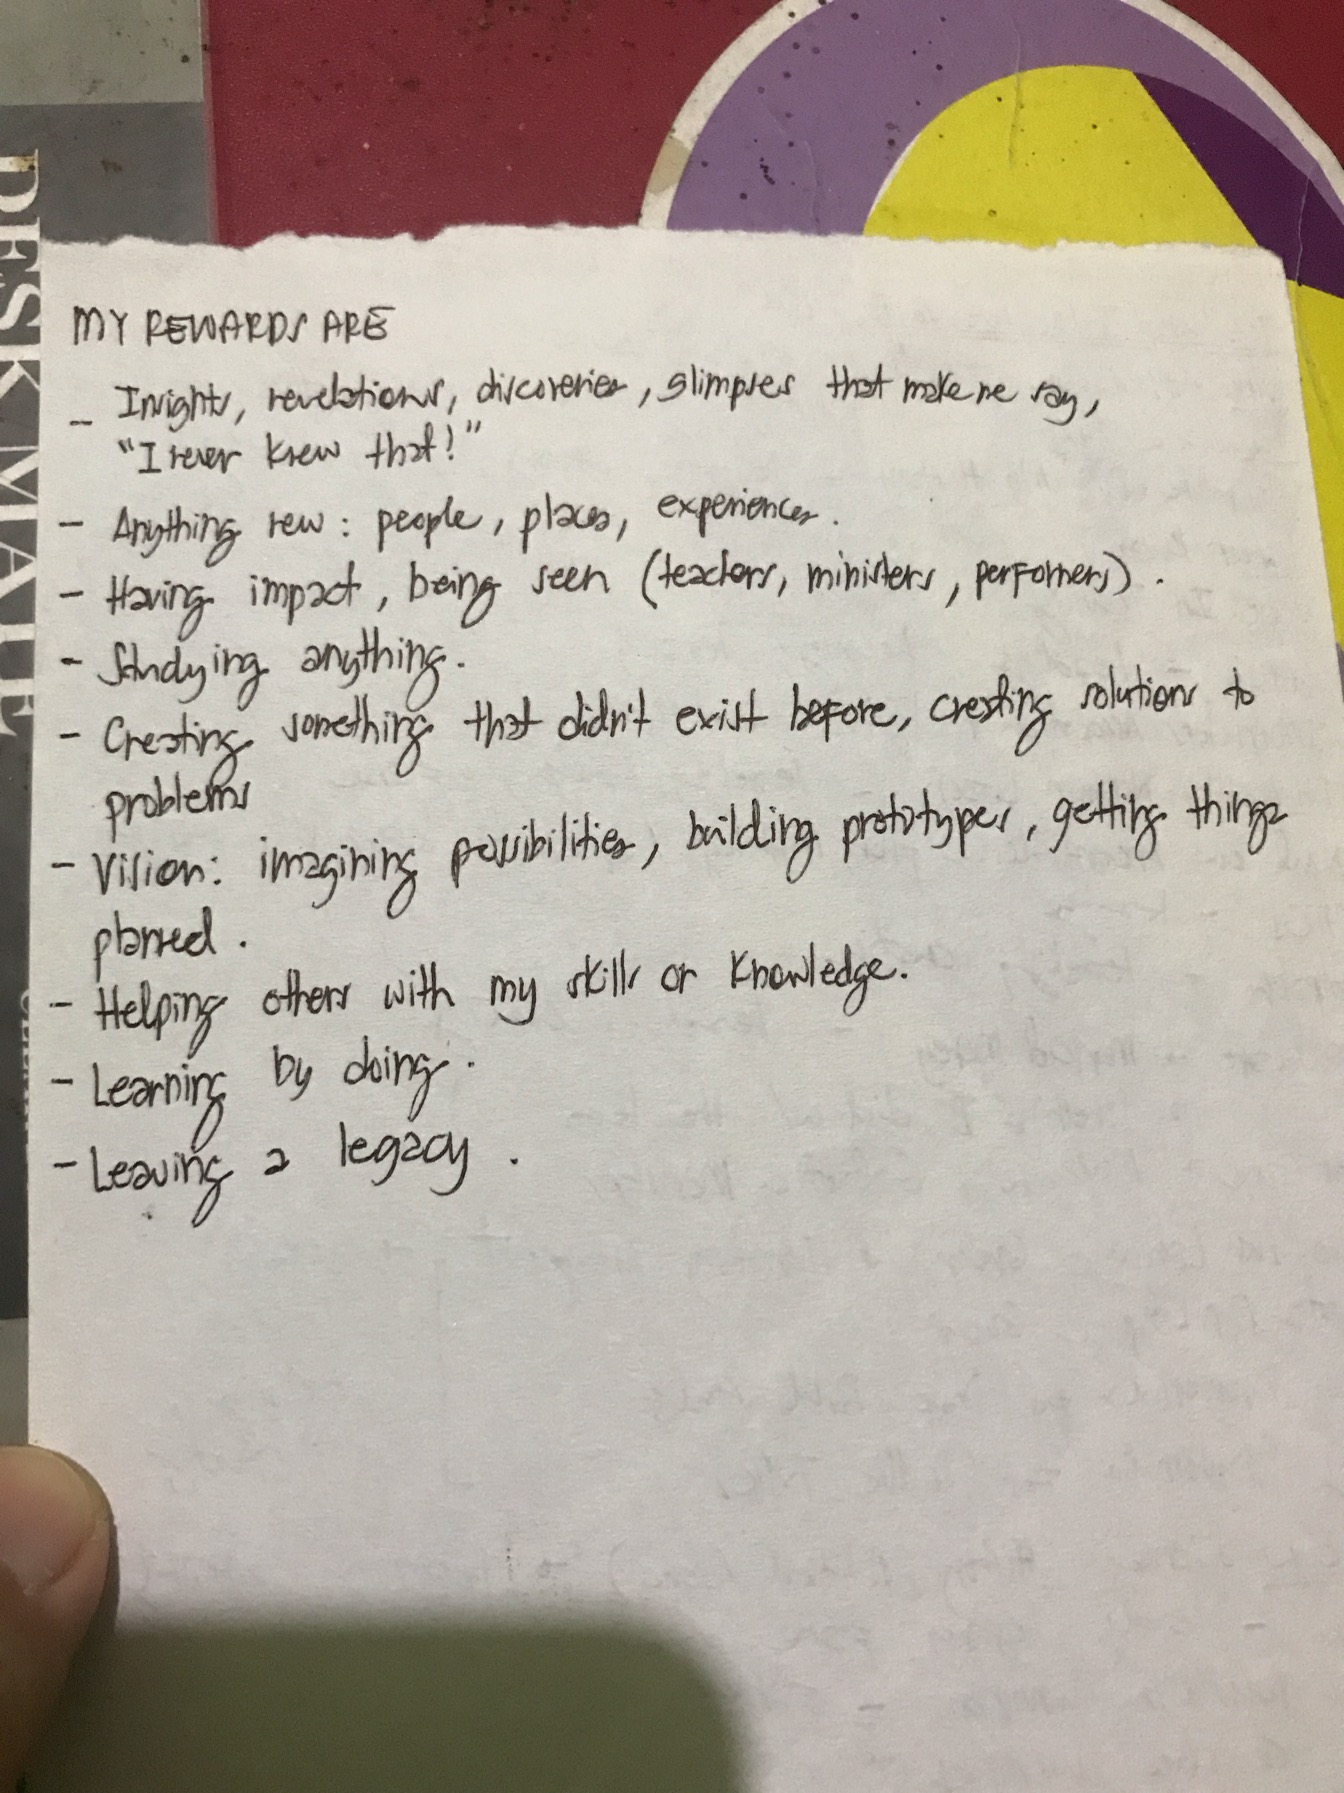 DESK MATE
MY REWARDS ARE
- Insights, revelations, discoveries, glimpses that make me say,
"I never knew that!"
- Anything new: people, places, experiences.
- Having impact, being seen (teachers, ministers, performers).
- Studying anything.
- Creating something that didn't exist before, creating solutions to
problems
- Vision: imagining possibilities, building prototypes, getting things
planned.
- Helping others with my skills or knowledge.
- Learning by doing.
- Leaving a legacy.